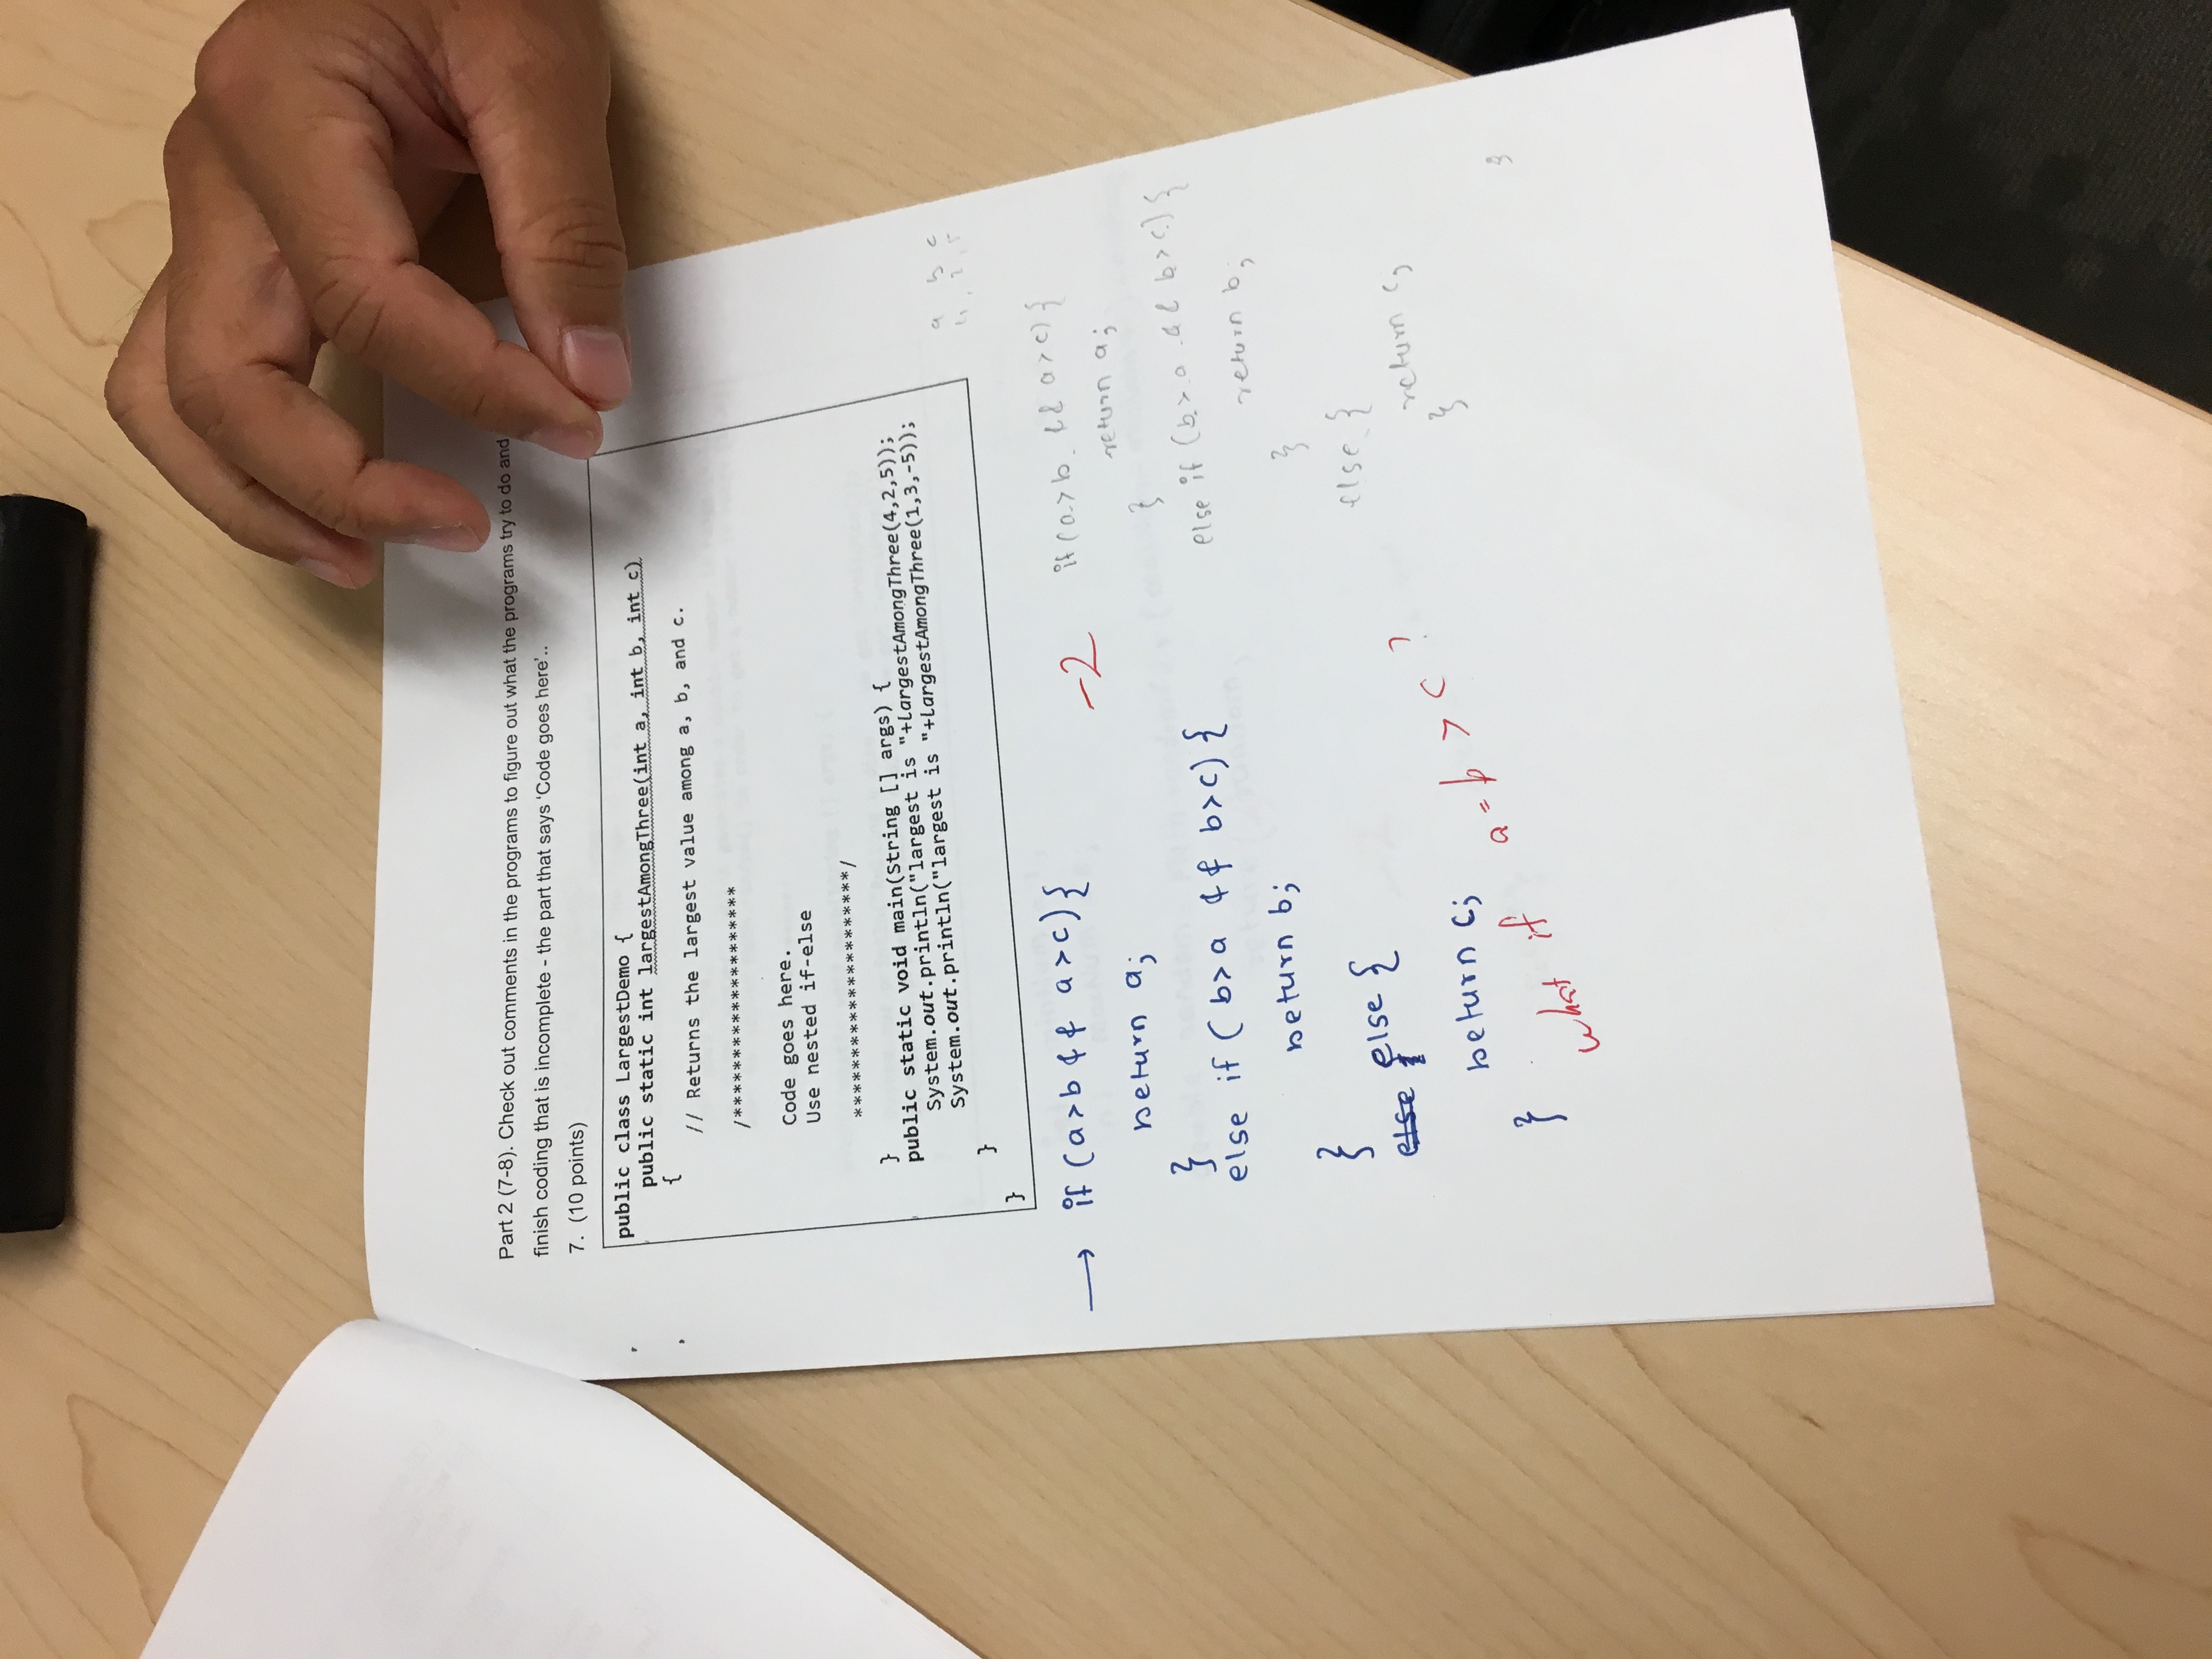 Part 2 (7-8). Check out comments in the programs to figure out what the programs try to do and
finish coding that is incomplete - the part that says 'Code goes here'..
7. (10 points)
public class LargestDemo {
public static int largestAmongThree(int a, int b, int c)
{
// Returns the largest value among a, b, and c.
/********************
Code goes here.
Use nested if-else
*********************/
}
public static void main(String [] args) {
System.out.println("largest is "+largestAmongThree(4,2,5));
System.out.println("largest is "+largestAmongThree(1,3,-5));
}
}
→ if (a>b && a>c) {
return a;
}
else if ( b>a && b>c) {
return b;
}
else {
return c;
}
-2
what if a = b > c ?
a b c
4, 2, 5
if (a>b && a>c) {
return a;
}
else if (b>a && b>c) {
return b;
}
else {
return c;
}
}